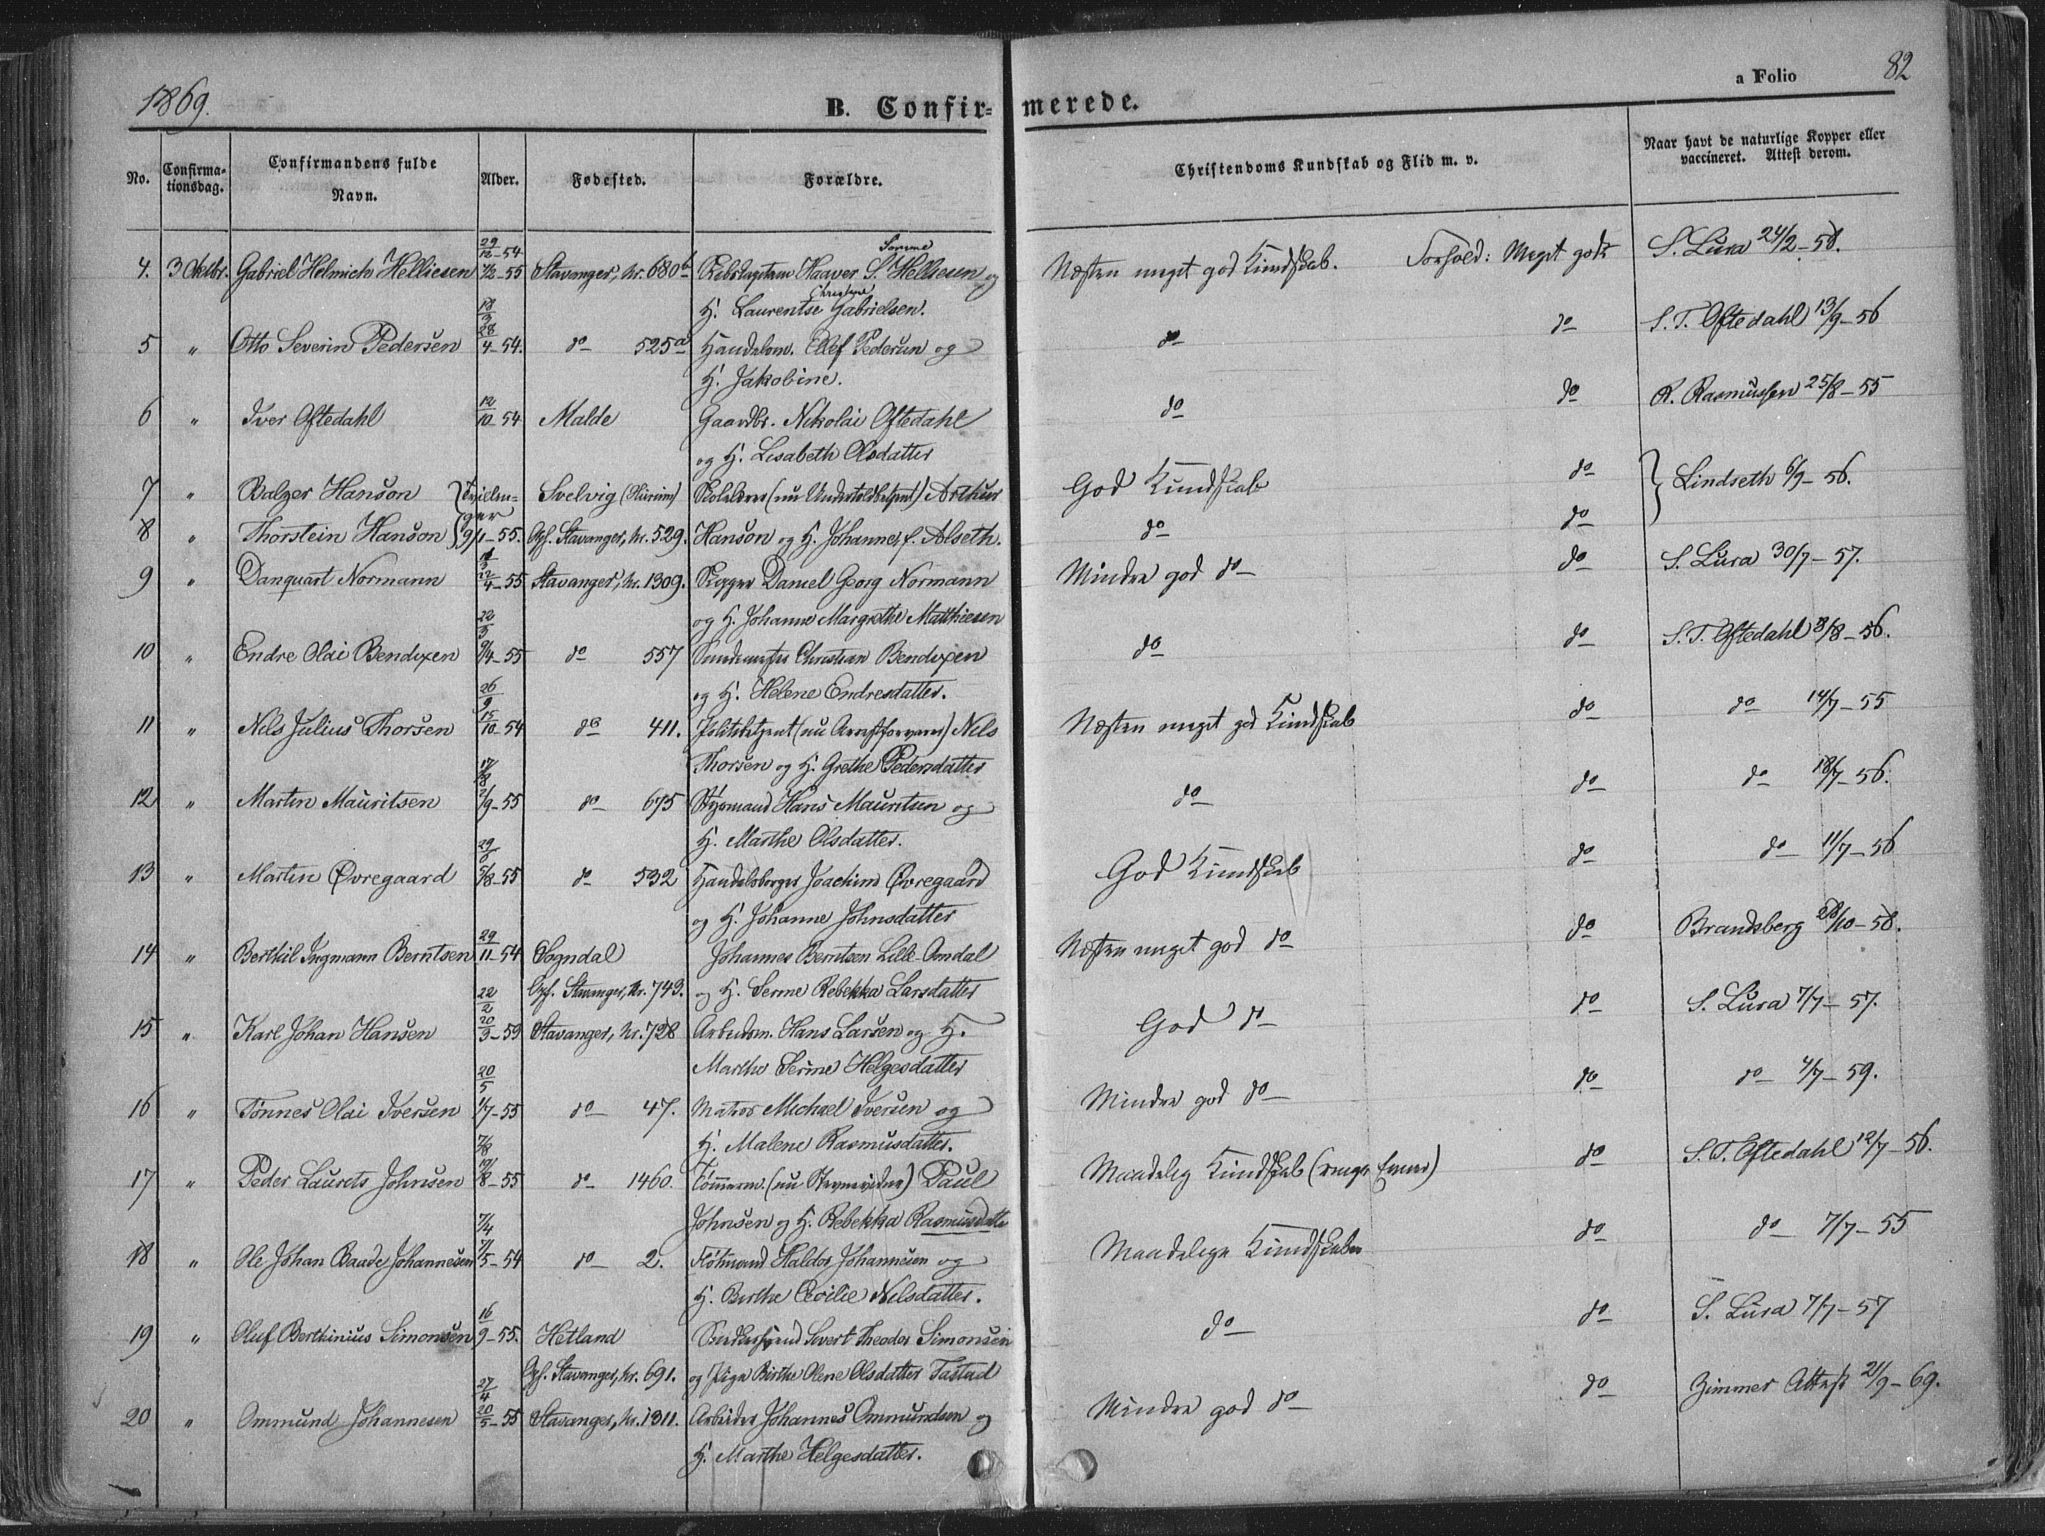 1869.
B. Confir-
merede.
a Folio 82
No.
Confirma-
tionsdag.
Confirmandens fulde
Navn.
Alder.
Fødested.
Forældre.
Christendoms Kundskab og Flid m. v.
Naar havt de naturlige Kopper eller
vaccineret. Attest derom.
4. 3 Oktbr. Gabriel Helmich Helliesen 29/12-54 Stavanger, Nr. 680b Haaver Sømme S. Helliesen og Næsten meget god Kundskab. Forhold: Meget godt S. Lura 24/2-58.
H. Laurentse Christine Gabrielsen.
5 " Otto Severin Pedersen 28/4-54. do 525a Handelsm. Ellef Pedersen og do do S. T. Oftedahl 13/9-56
H. Jakobine.
6 " Iver Oftedahl 12/10-54 Malde Gaardbr. Nikolai Oftedahl do do R. Rasmussen 25/8-55
og H. Lisabeth Olsdatter
7 " Balzer Hanson } Tvillin- Svelvig (Hurum) (nu Undertoldbetjent) Arthur God Kundskab do } Lindseth 6/9-56.
ger
8 " Thorstein Hanson } 9/1-55. Opf. Stavanger, Nr. 529. Hanson og H. Johanne, f. Alseth. do do
9 " Danquart Normann 4-55 Stavanger, Nr. 1309. Skipper Daniel Georg Normann Mindre god do do S. Lura 30/7-57.
og H. Johanne Margrethe Matthiesen
10 " Endre Olai Bendixen 22/3 9/4-55 do 557 Christian Bendixen do do S. T. Oftedahl 8/8-56.
og H. Helene Endresdatter.
11 " Nels Julius Thorsen 26/9 15/10-54 do 411. Politibetjent (nu Arrestforvarer) Nels Næsten meget god Kundskab do do 14/7-55
Thorsen og H. Grethe Pedersdatter
12 " Martin Mauritsen 17/8 2/9-55 do 675 Styrmand Hans Mauritsen og do do do 18/7-56.
H. Marthe Olsdatter.
13 " Martin Øvregaard 29/6 5/8-55 do 532 Handelsborger Joachim Øvregaard God Kundskab do do 11/7-56
og H. Johanne Johnsdatter
14 " Berthil Ingmann Berntsen 29/11-54 Sogndal Johannes Berntsen Lille-Omdal Næsten meget god do do Brandsberg 28/10-58.
Opf. Stavanger, Nr. 743. og H. Serine Rebekka Larsdatter
15 " Karl Johan Hansen 22/2 20/3-59 Stavanger, Nr. 728 Arbeidsm. Hans Larsen og H. God do do S. Lura 7/7-57.
Marthe Serine Helgesdatter
16 " Tønnes Olai Iversen 20/5 1/7-55 do 47. Matros Michael Iversen og Mindre god do do do 4/7-59.
H. Malene Rasmusdatter.
17 " Peder Laurets Johnsen 7/8 19/8-55 do 1460. Tømmerm. (nu Stevnevidne) Paul Maadelig Kundskab (ringe Evner) do S. T. Oftedahl 12/7-56.
Johnsen og H. Rebekka Rasmusdatter
18 " Ole Johan Baade Johannesen 7/4 7/5-54 do 2. Haldor Johannesen og Maadelige Kundskaber do do 7/7-55
H. Birthe Cecilie Nilsdatter.
19 " Oluf Berthinius Simonsen 16/9-55. Hetland Sivert Theodor Simonsen do do S. Lura 7/7-57
Opf. Stavanger, Nr. 691. og Pige Birthe Olene Olsdatter Tastad
20 " Ommund Johannesen 27/4 20/5-55 Stavanger, Nr. 1311. Arbeider Johannes Ommundsen og Mindre god do do Zimmer Attest 21/9-69.
H. Marthe Helgesdatter.